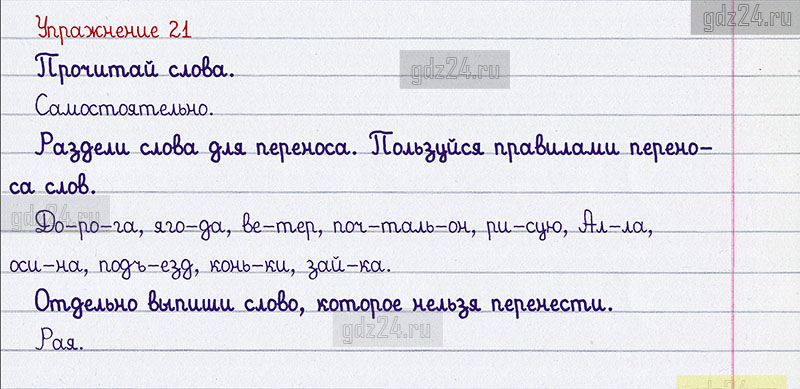 Упражнение 21
gdz24.ru
Прочитай слова.
gdz24.ru
Самостоятельно.
Раздели слова для переноса. Пользуйся правилами перено-
са слов.
gdz24.ru
До-ро-га, яго-да, ве-тер, поч-таль-он, ри-сую, Ал-ла,
оси-на, подъ-езд, конь-ки, зай-ка.
Отдельно выпиши слово, которое нельзя перенести.
gdz24.ru
Рая.